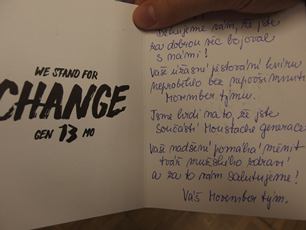 WE STAND FOR
CHANGE
GEN 13 MO
Děkujeme vám, že jste
za dobrou věc bojoval
s námi!
Vaše úžasné pěstování kníru
neproběhlo bez povšimnutí
Movember týmu.
Jsme hrdi na to, že jste
součástí Moustache generace.
Vaše nadšení pomáhá měnit
tvář mužského zdraví
a za to vám salutujeme!
Váš Movember tým.